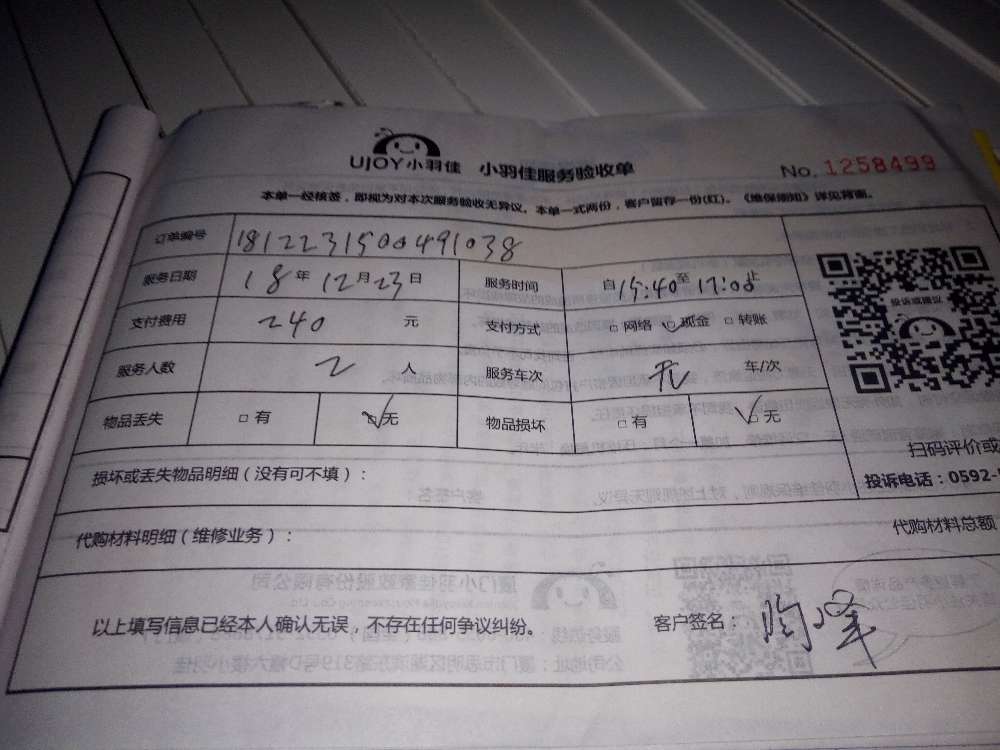 UJOY小羽佳 小羽佳服务验收单 No. 1258499
本单一经核签，即视为对本次服务验收无异议。本单一式两份，客户留存一份(红)。《维保须知》详见背面。
订单编号 1812231500491038
服务日期 18年12月23日 服务时间 自15:40至17:00止
投诉或建议
支付费用 240 元 支付方式 □网络 □现金 □转账
服务人数 2 人 服务车次 无 车/次
物品丢失 □有 □无 物品损坏 □有 □无
扫码评价或
损坏或丢失物品明细（没有可不填）： 投诉电话：0592-
代购材料明细（维修业务）： 代购材料总额
以上填写信息已经本人确认无误，不存在任何争议纠纷。 客户签名：